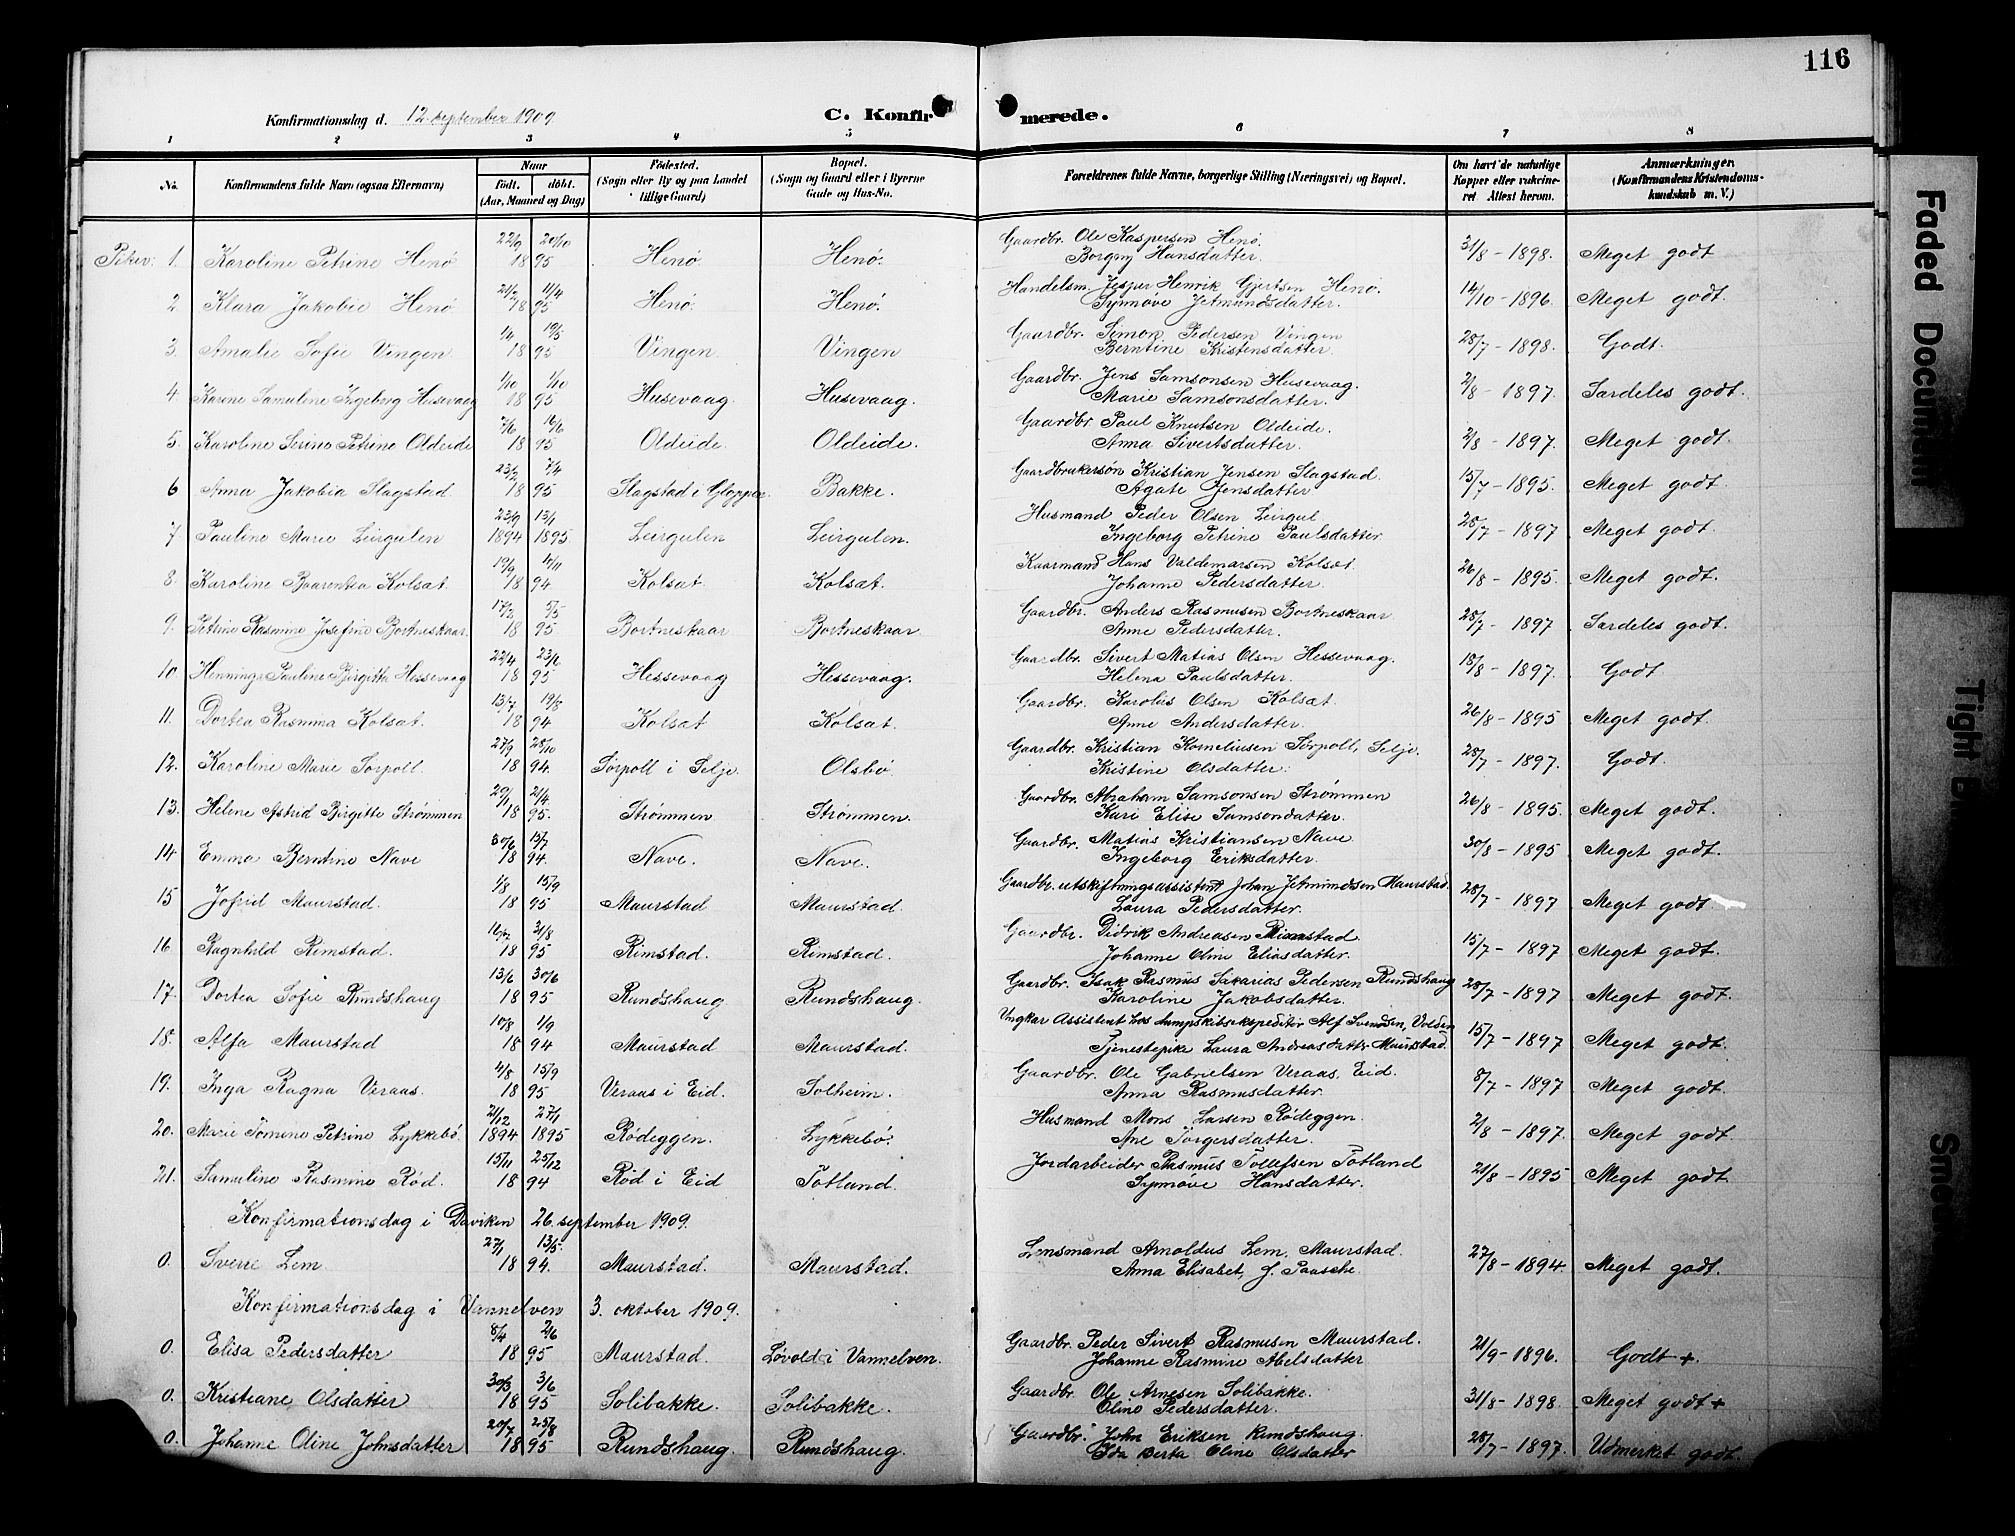 116
Konfirmationsdag d. 12 september 1909
C. Konfirmerede.
1 2 3 4 5 6 7 8
No. Konfirmandens fulde Navn (ogsaa Efternavn) Naar födt. döbt. (Aar, Maaned og Dag) Födested. (Sogn eller By og paa Landet tillige Gaard) Bopæl. (Sogn og Gaard eller i Byerne Gade og Hus-No. Forældrenes fulde Navne, borgerlige Stilling (Næringsvei) og Bopæl. Om havt de naturlige Kopper eller vakcineret Attest herom. Anmærkninger (Konfirmandens Kristendomskundskab m. V.)
Piker: 1. Karoline Petrine Henö 22/9 20/10 1895 Henö Henö. Gaardbr. Ole Kaspersen Henö. Borgny Hansdatter. 31/8 - 1898. Meget godt
2 Klara Jakobie Henö 21/2 11/4 1895 Henö. Henö. Handelsm. Jesper Henrik Gjertsen Henö. Synnöve Jetmundsdatter. 14/10 - 1896. Meget godt.
3. Amalie Sofie Vingen 1/4 19/5 1895 Vingen. Vingen Gaardbr. Simon Pedersen Vingen Berntine Kristensdatter. 28/7 - 1898. Godt.
4 Karine Samuline Ingeborg Husevaag 1/10 1/10 1895 Husevaag. Husevaag. Gaardbr. Jens Samsonsen Husevaag. Marie Samsonsdatter. 2/8 - 1897. Særdeles godt.
5. Karoline Serine Petrine Oldeide 7/6 16/6 1895 Oldeide. Oldeide. Gaardbr. Paul Knutsen Oldeide. Anna Sivertsdatter. 2/8 - 1897. Meget godt.
6 Anna Jakobia Slagstad. 23/2 7/4 1895 Slagstad i Gloppen. Bakke. Gaardbrukersön Kristian Jensen Slagstad. Agate Jensdatter 15/7 - 1895. Meget godt.
7. Pauline Marie Leirgulen 23/9 13/1 1894 1895. Leirgulen Leirgulen. Husmand Peder Olsen Leirgul Ingeborg Petrine Paulsdatter. 28/7 - 1897 Meget godt.
8. Karoline Baarentea Kolsæt 19/9 11/11 1894 Kolsæt. Kolsæt. Kaarmand Hans Valdemarsen Kolsæt. Johanne Pedersdatter. 26/8 - 1895. Meget godt.
9. Petrine Rasmine Josefine Bortneskaar. 17/2 5/5 1895 Bortneskaar Bortneskaar Gaardbr. Anders Rasmusen Bortneskaar Anne Pedersdatter. 28/7 - 1897 Særdeles godt.
10. Henninge Pauline Birgitta Hessevaag 22/4 23/6 1895. Hessevaag Hessevaag. Gaardbr. Sivert Matias Olsen Hessevaag. Helena Paulsdatter. 18/8 - 1897. Godt
11. Dortea Rasmina Kolsæt. 13/7 19/8 1894 Kolsæt Kolsæt. Gaardbr. Karolus Olsen Kolsæt. Anne Andersdatter. 26/8 - 1895 Meget godt.
12. Karoline Marie Sørpoll. 27/9 28/10 1894. Sørpoll i Selje. Olsbö. Gaardbr. Kristian Korneliusen Sørpoll, Selje. Kristine Olsdatter. 28/7 - 1897. Godt.
13. Helene Astrid Birgitte Strømmen 29/1 21/4 1895. Strømmen Strømmen. Gaardbr. Abraham Samsonsen Strømmen Kari Elise Samsondatter. 26/8 - 1895. Meget godt.
14 Emma Berntine Nave 30/6 15/7 1894. Nave. Nave. Gaardbr. Matias Kristiansen Nave Ingeborg Eriksdatter. 30/8 - 1895 Meget godt.
15 Jofrid Maurstad. 1/8 15/9 1895 Maurstad Maurstad. Gaardbr. utskiftningsassistent Johan Jetmundsen Maurstad. Laura Pedersdatter. 28/7 - 1897 Meget godt
16 Ragnhild Rimstad. 21/8 1895 Rimstad. Rimstad. Gaardbr. Didrik Andreasen Rimstad. Johanne Oline Eliasdatter. 15/7 - 1897 Meget godt.
17. Dortea Sofie Rundshaug 13/6 30/6 1895 Rundshaug Rundshaug. Gaardbr. Isak Rasmus Sakarias Pedersen Rundshaug Karoline Jakobsdatter. 28/7 - 1897 Meget godt.
18. Alfa Maurstad 10/8 1/9 1894 Maurstad Maurstad. Ungkar Assistent hos dampskibsekspeditör Alf Svendsen, Volden Tjenestepike Laura Andreasdatter Maurstad. 15/7 - 1897 Meget godt.
19. Inga Ragna Veraas. 4/8 15/9 1895 Veraas i Eid. Solheim. Gaardbr. Ole Gabrielsen Veraas, Eid. Anna Rasmusdatter. 8/7 - 1897 Meget godt.
20. Marie Tomine Petrine Lykkebö. 21/12 27/1 1894 1895 Rödeggen. Lykkebö. Husmand Mons Larsen Rödeggen. Ane Torgersdatter. 2/8 - 1897. Meget godt.
21. Samuline Rasmine Röd. 15/11 25/12 1894 Röd i Eid Totland. Jordarbeider Rasmus Tollefsen Totland Synnöve Hansdatter. 21/8 - 1895 Meget godt.
Konfirmationsdag i Daviken 26. september 1909.
0. Sverre Lem. 27/1 13/5. 1894. Maurstad. Maurstad. Lensmand Arnoldus Lem, Maurstad. Anna Elisabet, f. Paasche. 27/8 - 1894. Meget godt.
Konfirmationsdag i Vannelven 3. oktober 1909.
0. Elisa Pedersdatter 8/4 2/6 1895 Maurstad. Løvold i Vannelven. Gaardbr. Peder Sivert Rasmusen Maurstad. Johanne Rasmine Abelsdatter 21/9 - 1896. Godt +.
0. Kristiane Olsdatter 30/3 3/6 1895 Solibakke. Solibakke. Gaardbr. Ole Arnesen Solibakke. Oline Pedersdatter. 31/8 - 1898. Meget godt +
0. Johanne Oline Johnsdatter 20/7 25/8 1895 Rundshaug. Rundshaug. Gaardbr. John Eriksen Rundshaug. Ida Berta Oline Olsdatter 28/7 - 1897. Udmerket godt.
Faded Document
Tight B
Sm